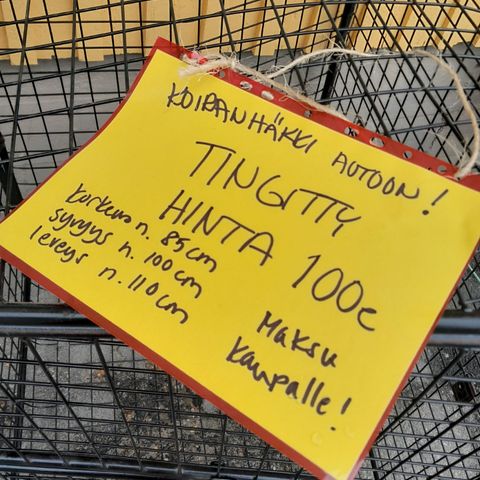 KOIRANHÄKKI AUTOON!
TINGITTY
HINTA 100€
korkeus n. 85cm
syvyys n. 100cm
leveys n. 110cm
Maksu
kaupalle!